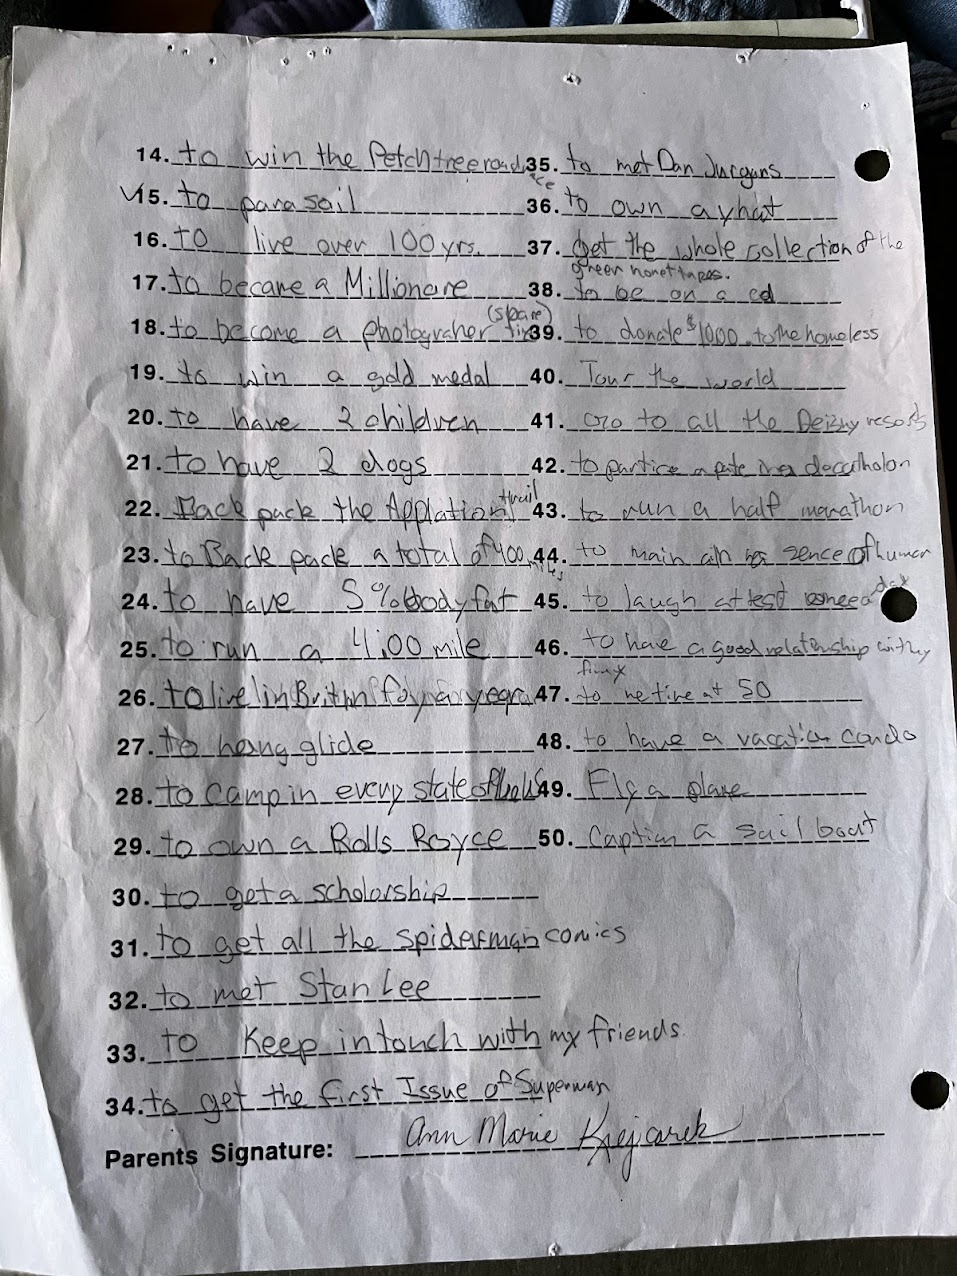 14. to win the Petchtree road
ace
✓15. to para sail
16. to live over 100 yrs.
17. to became a Millionare
18. to become a photograher (spare)
19. to win a gold medal
20. to have 2 children
21. to have 2 dogs
22. Back pack the Applation trail
23. to Back pack a total of 400
24. to have 5% body fat
25. to run a 4:00 mile
26. to live in
27. to hang glide
28. to camp in every state of the
29. to own a Rolls Royce
30. to get a scholorship
31. to get all the spiderman comics
32. to met Stan Lee
33. to Keep in touch with my friends.
34. to get the first Issue of Superman
35. to met Dan Jurgans
36. to own a yhat
37. Get the whole collection of the
green honet tapes.
38. to be on a ed
39. to donate $1000 to the homeless
40. Tour the world
41. Go to all the resorts
42. to partice a pate in a deccatholon
43. to run a half marathon
44. to main ain sence of humor
45. to laugh at lest day
46. to have a good relationship with my
47. to retire at 50
48. to have a vacation condo
49. Fly a plane
50. Caption a sail boat
Parents Signature: Ann Marie Krejcarek